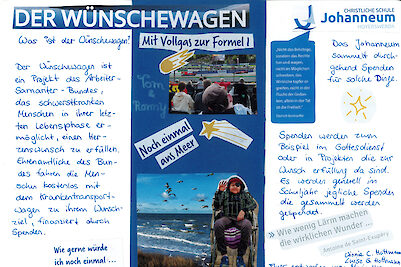 DER WÜNSCHEWAGEN
Was ist der Wünschewagen?
Der Wünschewagen ist
ein Projekt des Arbeiter-
Samariter-Bundes,
das schwerstkranken
Menschen in ihrer letz-
ten Lebensphase er-
möglicht, einen Her-
zenswunsch zu erfüllen.
Ehrenamtliche des Bun-
des fahren die Men-
schen kostenlos mit
dem Krankentransport-
wagen zu ihrem Wunsch-
ziel, finanziert durch
Spenden.
Wie gerne würde
ich noch einmal ...
Mit Vollgas zur Formel 1
Tom
&
Noch einmal
ans Meer
CHRISTLICHE SCHULE
Johanneum
Das Johanneum
sammelt durch-
gehend Spenden
für solche Dinge.
Spenden werden zum
Beispiel im Gottesdienst
oder in Projekten die zur
Wunsch erfüllung da sind.
Es werden generell im
Schuljahr jegliche Spenden
die gesammelt werden
gespendet.
Wie wenig Lärm machen
die wirklichen Wunder ...
Antoine de Saint-Exupéry